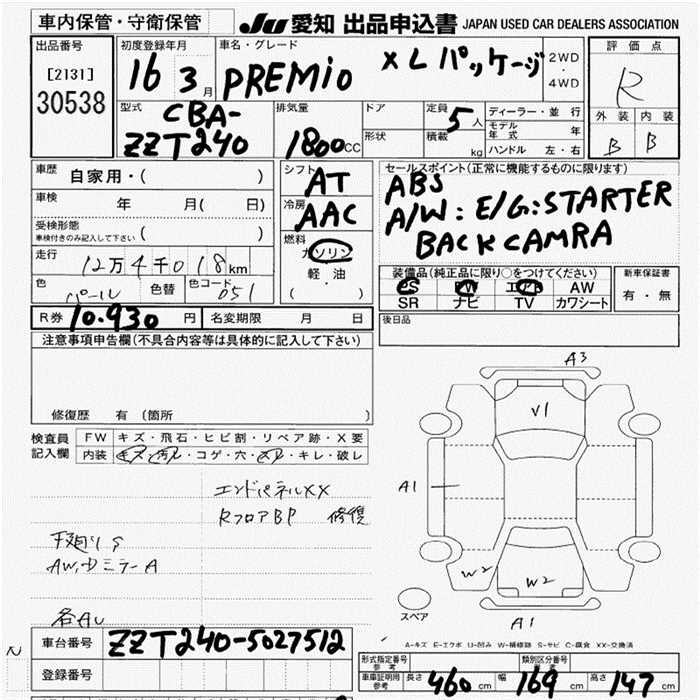 車内保管・守衛保管 JU 愛知 出品申込書 JAPAN USED CAR DEALERS ASSOCIATION
出品番号 初度登録年月 車名・グレード 評価点
[2131] 16 3月 PREMIO X Lパッケージ 2WD・4WD R
30538 外装 内装
型式 排気量 ドア 定員 ディーラー・並行 B B
CBA- 5人 モデル年式 年
ZZT240 1800CC 形状 積載 kg ハンドル 左・右
車歴 自家用・( ) シフト AT セールスポイント(正常に機能するものに限ります)
車検 年 月( 日) 冷房 AAC ABS
受検形態 A/W:E/G:STARTER
車検付きのみ記入して下さい ( ) 燃料 ガソリン BACK CAMRA
走行 12万4千018km 軽・油 装備品(純正品に限り○をつけてください) 新車保証書
色 パール 色替 色コード 051 ( ) PS PW エアB AW 有・無
SR ナビ TV カワシート
R券 10.930円 名変期限 月 日 後日品
注意事項申告欄(不具合内容等は具体的に記入して下さい)
修復歴 有(箇所 )
検査員記入欄 FW キズ・飛石・ヒビ割・リペア跡・X要
内装 キズ・汚レ・コゲ・穴・スレ・キレ・破レ
A3
V1
A1
エンドパネルXX
RフロアBP 修復
下廻りS
AW,ドミラーA
W2 W2
A1
スペア
各AU
A-キズ E-エクボ U-凹み W-補修跡 S-サビ C-腐食 XX-交換済
N 車台番号 ZZT240-5027512
登録番号
形式指定番号 参考 類別区分番号 参考
車庫証明用参考 長さ 460cm 幅 169cm 高さ 147cm